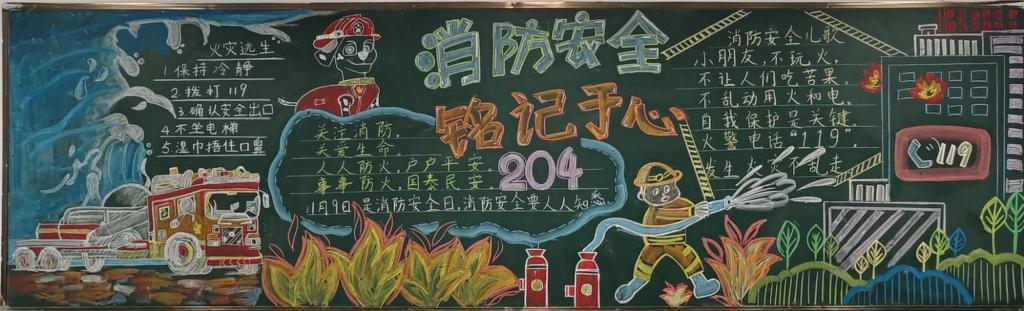 消防安全
铭记于心
204
火灾逃生
1.保持冷静
2.拨打119
3.确认安全出口
4.不坐电梯
5.湿巾捂住口鼻
关注消防，
关爱生命。
人人防火，户户平安
事事防火，国泰民安，
11月9日是消防安全日，消防安全要人人知悉
消防安全儿歌
小朋友，不玩火，
不让人们吃苦果。
不乱动用火和电，
自我保护是关键
火警电话“119”
发生火灾不乱走
119